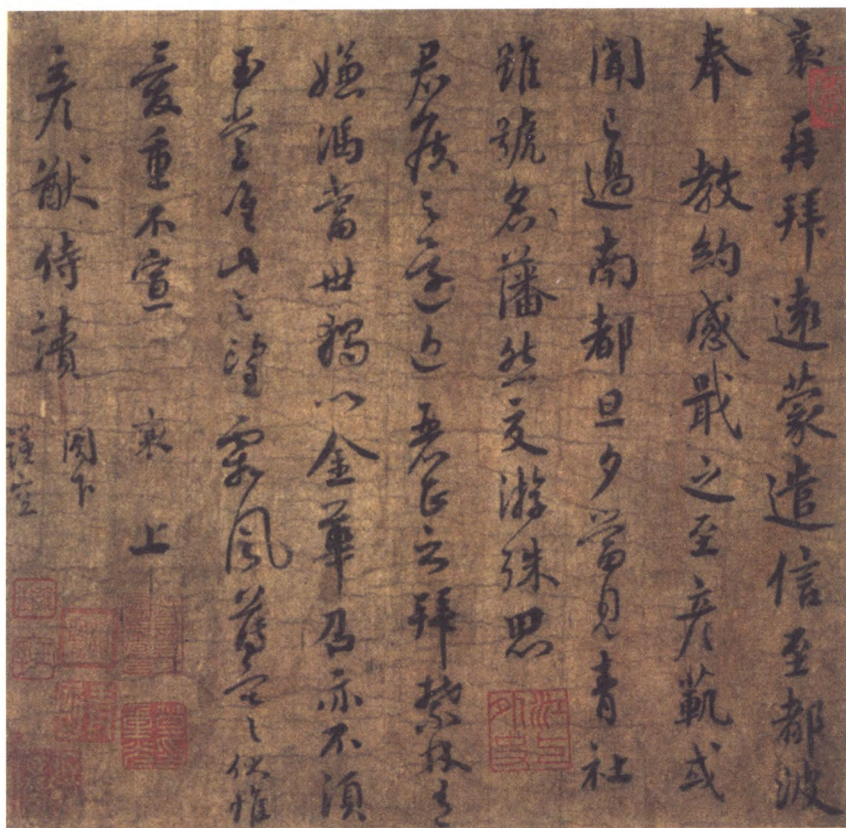 襄再拜遠蒙遣信至都波
奉 教約感戢之至彥範或
聞已過南都旦夕當見青社
雖號名藩然交游殊思
君侯之還近麗正之拜禁林有
嫌馮當世獨以金華召亦不須
玉堂唯此之望霜風薄寒伏惟
愛重不宣 襄 上
彥猷侍讀 閣下
謹空